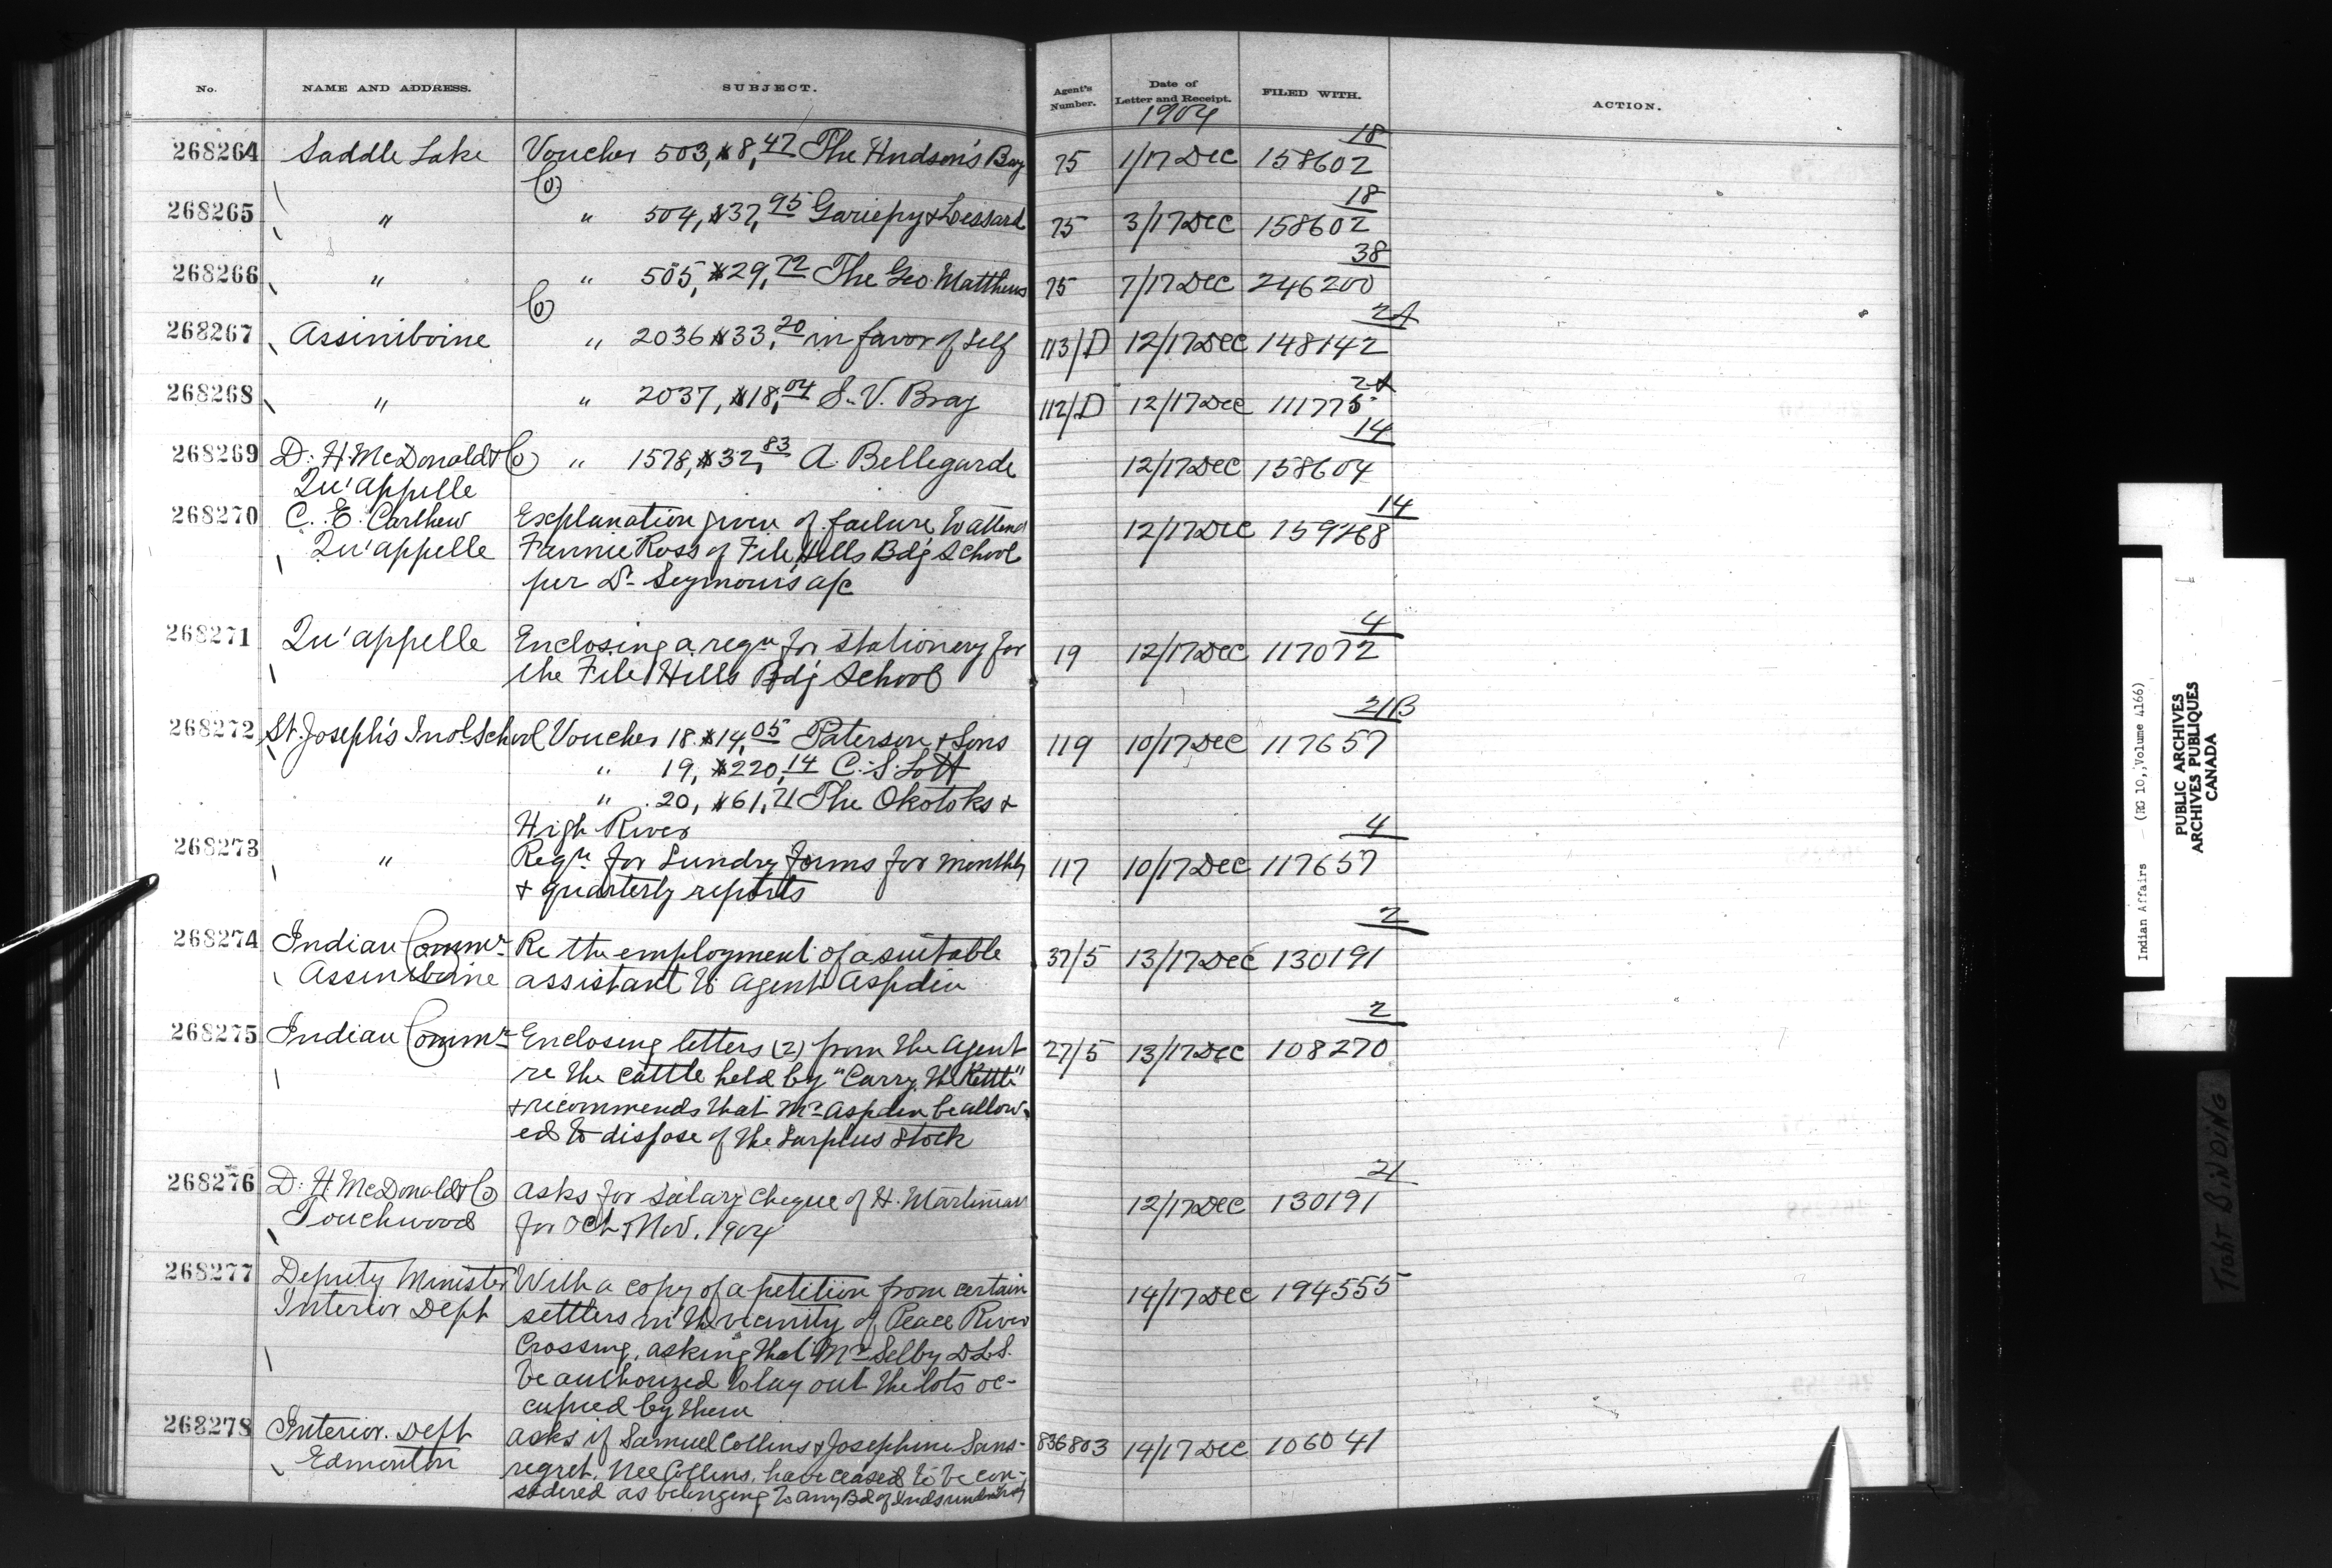 No. NAME AND ADDRESS. SUBJECT. Agent's Number. Date of Letter and Receipt. FILED WITH. ACTION.
1904
18
268264 Saddle Lake Voucher 503, $8,47 The Hudson's Bay 75 1/17 Dec 158602
Co
18
268265 " " 504, $37,95 Gariepy & Lessard 75 3/17 Dec 158602
38
268266 " " 505, $29,72 The Geo. Matthews 75 7/17 Dec 246200
Co
2A
268267 Assiniboine " 2036 $33,20 in favor of Self 113/D 12/17 Dec 148142
2A
268268 " " 2037, $18,04 S. V. Bray 112/D 12/17 Dec 111775
14
268269 D. H. McDonald & Co " 1578, $32,83 A. Bellegarde 12/17 Dec 158604
Qu'appelle
14
268270 C. E. Carthew Explanation given of failure to attend 12/17 Dec
Qu'appelle Fannie Ross of File Hills Bdg School
per Dr Seymour's a/c
4
268271 Qu'appelle Enclosing a reqn for stationery for 19 12/17 Dec 117072
the File Hills Bdg School
21B
268272 St. Joseph's Indl School Voucher 18 $14,05 Paterson & Sons 119 10/17 Dec 117657
" 19, $220,14 C. S. Lott
" 20, $61,21 The Okotoks &
High River
4
268273 " Reqn for Sundry forms for monthly 117 10/17 Dec 117657
& quarterly reports
2
268274 Indian Commr Re the employment of a suitable 37/5 13/17 Dec 130191
Assiniboine assistant to Agent Aspdin
2
268275 Indian Commr Enclosing letters (2) from the Agent 27/5 13/17 Dec 108270
re the cattle held by "Carry the Kettle"
& recommends that Mr Aspdin be allow-
ed to dispose of the Surplus Stock
21
268276 D. H McDonald & Co Asks for salary cheque of H. Martineau 12/17 Dec 130191
Touchwood for Oct & Nov. 1904
268277 Deputy Minister With a copy of a petition from certain 14/17 Dec 194555
Interior Dept settlers in the vicinity of Peace River
Crossing, asking that Mr Selby D.L.S.
be authorized to lay out the lots oc-
cupied by them
268278 Interior. Dept asks if Samuel Collins & Josephine Sans- 836803 14/17 Dec 106041
Edmonton regret, nee Collins, have ceased to be con-
sidered as belonging to any Bd of Inds under Treaty
Indian Affairs (RG 10, Volume 4166)
PUBLIC ARCHIVES
ARCHIVES PUBLIQUES
CANADA
TIGHT BINDING